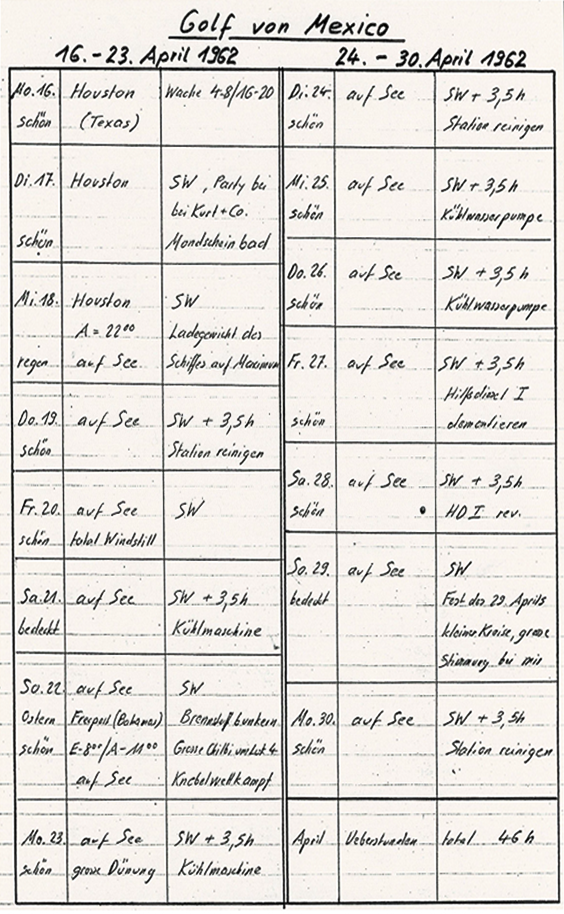 Golf von Mexico
16. - 23. April 1962
Mo. 16. Houston Wache 4-8/16-20
schön (Texas)
Di. 17. Houston SW, Party bei
bei Kurt + Co.
schön Mondschein bad
Mi. 18. Houston SW
A = 22⁰⁰ Ladegewicht des
regen auf See Schiffes auf Maximum
Do. 19. auf See SW + 3,5h
schön Station reinigen
Fr. 20. auf See SW
schön total Windstill
Sa. 21. auf See SW + 3,5h
bedeckt Kühlmaschine
So. 22 auf See SW
Ostern Freeport (Bahamas) Brennstoff bunkern
schön E-8⁰⁰/A-11⁰⁰ Grosse Chilbi 4
auf See Knebelwettkampf
Mo. 23. auf See SW + 3,5h
schön grosse Dünung Kühlmaschine
24. - 30. April 1962
Di. 24. auf See SW + 3,5h
schön Station reinigen
Mi. 25. auf See SW + 3,5h
schön Kühlwasserpumpe
Do. 26. auf See SW + 3,5h
schön Kühlwasserpumpe
Fr. 27. auf See SW + 3,5h
Hilfsdiesel I
schön demontieren
Sa. 28. auf See SW + 3,5h
schön HD I rev.
So. 29. auf See SW
bedeckt Fest des 29. Aprils
kleine Kreise, grosse
Stimmung bei mir
Mo. 30. auf See SW + 3,5h
schön Station reinigen
April Ueberstunden total 46 h